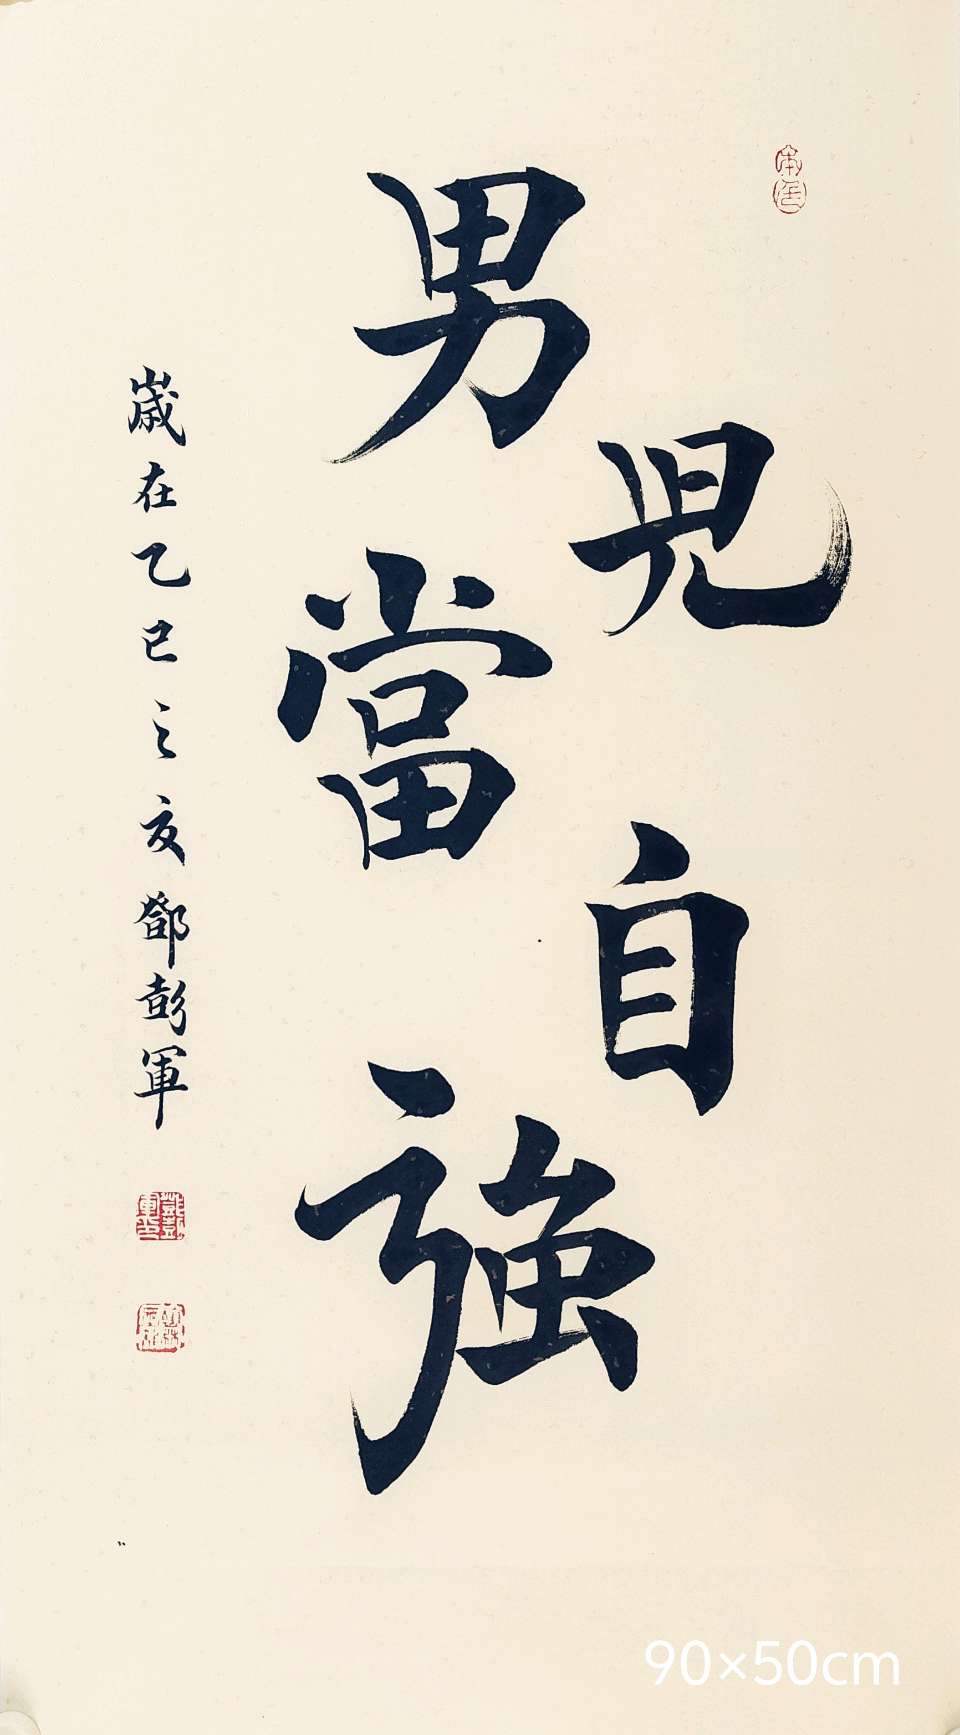 男兒當自強
歲在乙巳之夏鄧彭軍
90×50cm